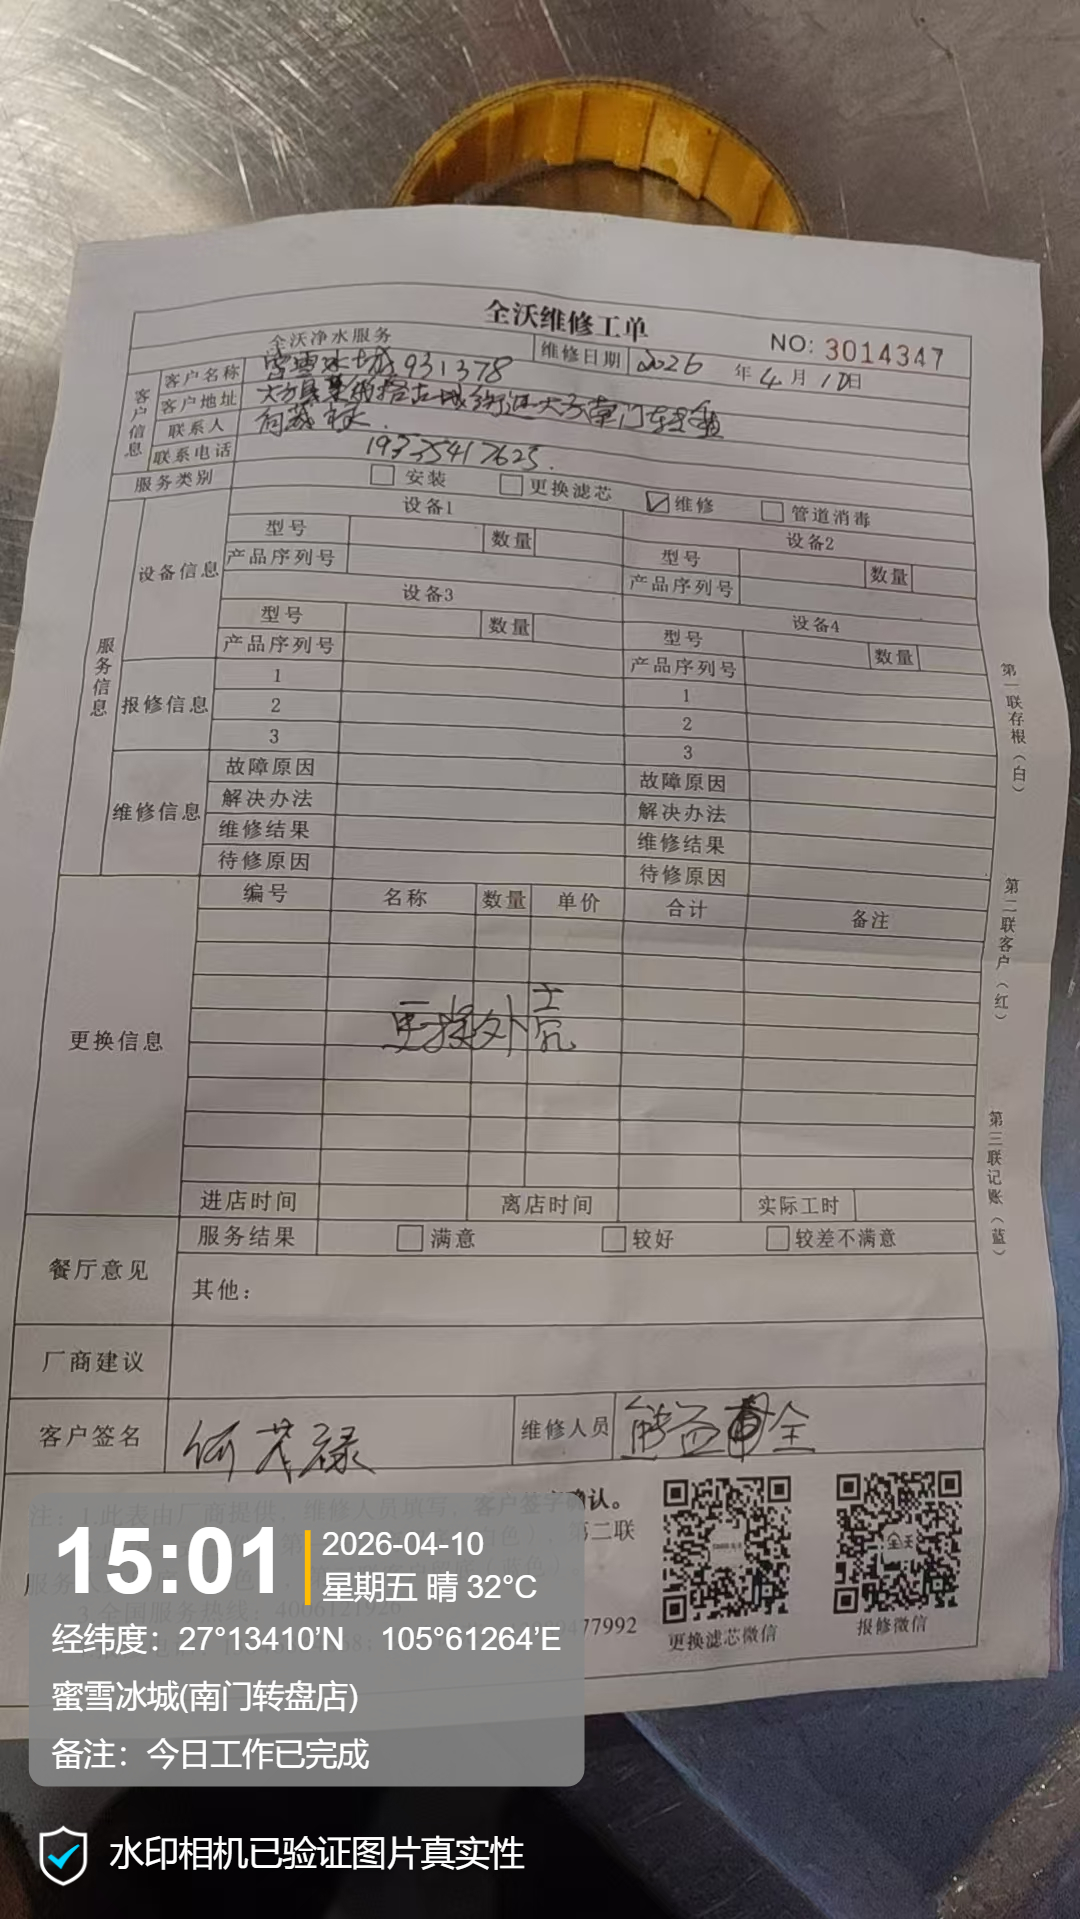 全沃维修工单
全沃净水服务
NO: 3014347
维修日期 2026 年 4 月 10 日
客户信息
客户名称 蜜雪冰城 931378
客户地址 大方县 古城街道大方南门转盘
联系人 何茂禄
联系电话
服务类别 安装 更换滤芯 ☑维修 管道消毒
服务信息
设备信息
设备1 设备2
型号 数量 型号 数量
产品序列号 产品序列号
设备3 设备4
型号 数量 型号 数量
产品序列号 产品序列号
报修信息
1 1
2 2
3 3
维修信息
故障原因 故障原因
解决办法 解决办法
维修结果 维修结果
待修原因 待修原因
更换信息
编号 名称 数量 单价 合计 备注
更换外壳
进店时间 离店时间 实际工时
餐厅意见
服务结果 满意 较好 较差不满意
其他:
厂商建议
客户签名 何茂禄 维修人员 熊益全
第一联存根（白）
第二联客户（红）
第三联记账（蓝）
注: 1.此表由厂商提供，维修人员填写，客户签字确认。
第二联
3.全国服务热线: 4006121926
77992
更换滤芯微信 报修微信
15:01
2026-04-10
星期五 晴 32°C
经纬度: 27°13410'N 105°61264'E
蜜雪冰城(南门转盘店)
备注: 今日工作已完成
水印相机已验证图片真实性